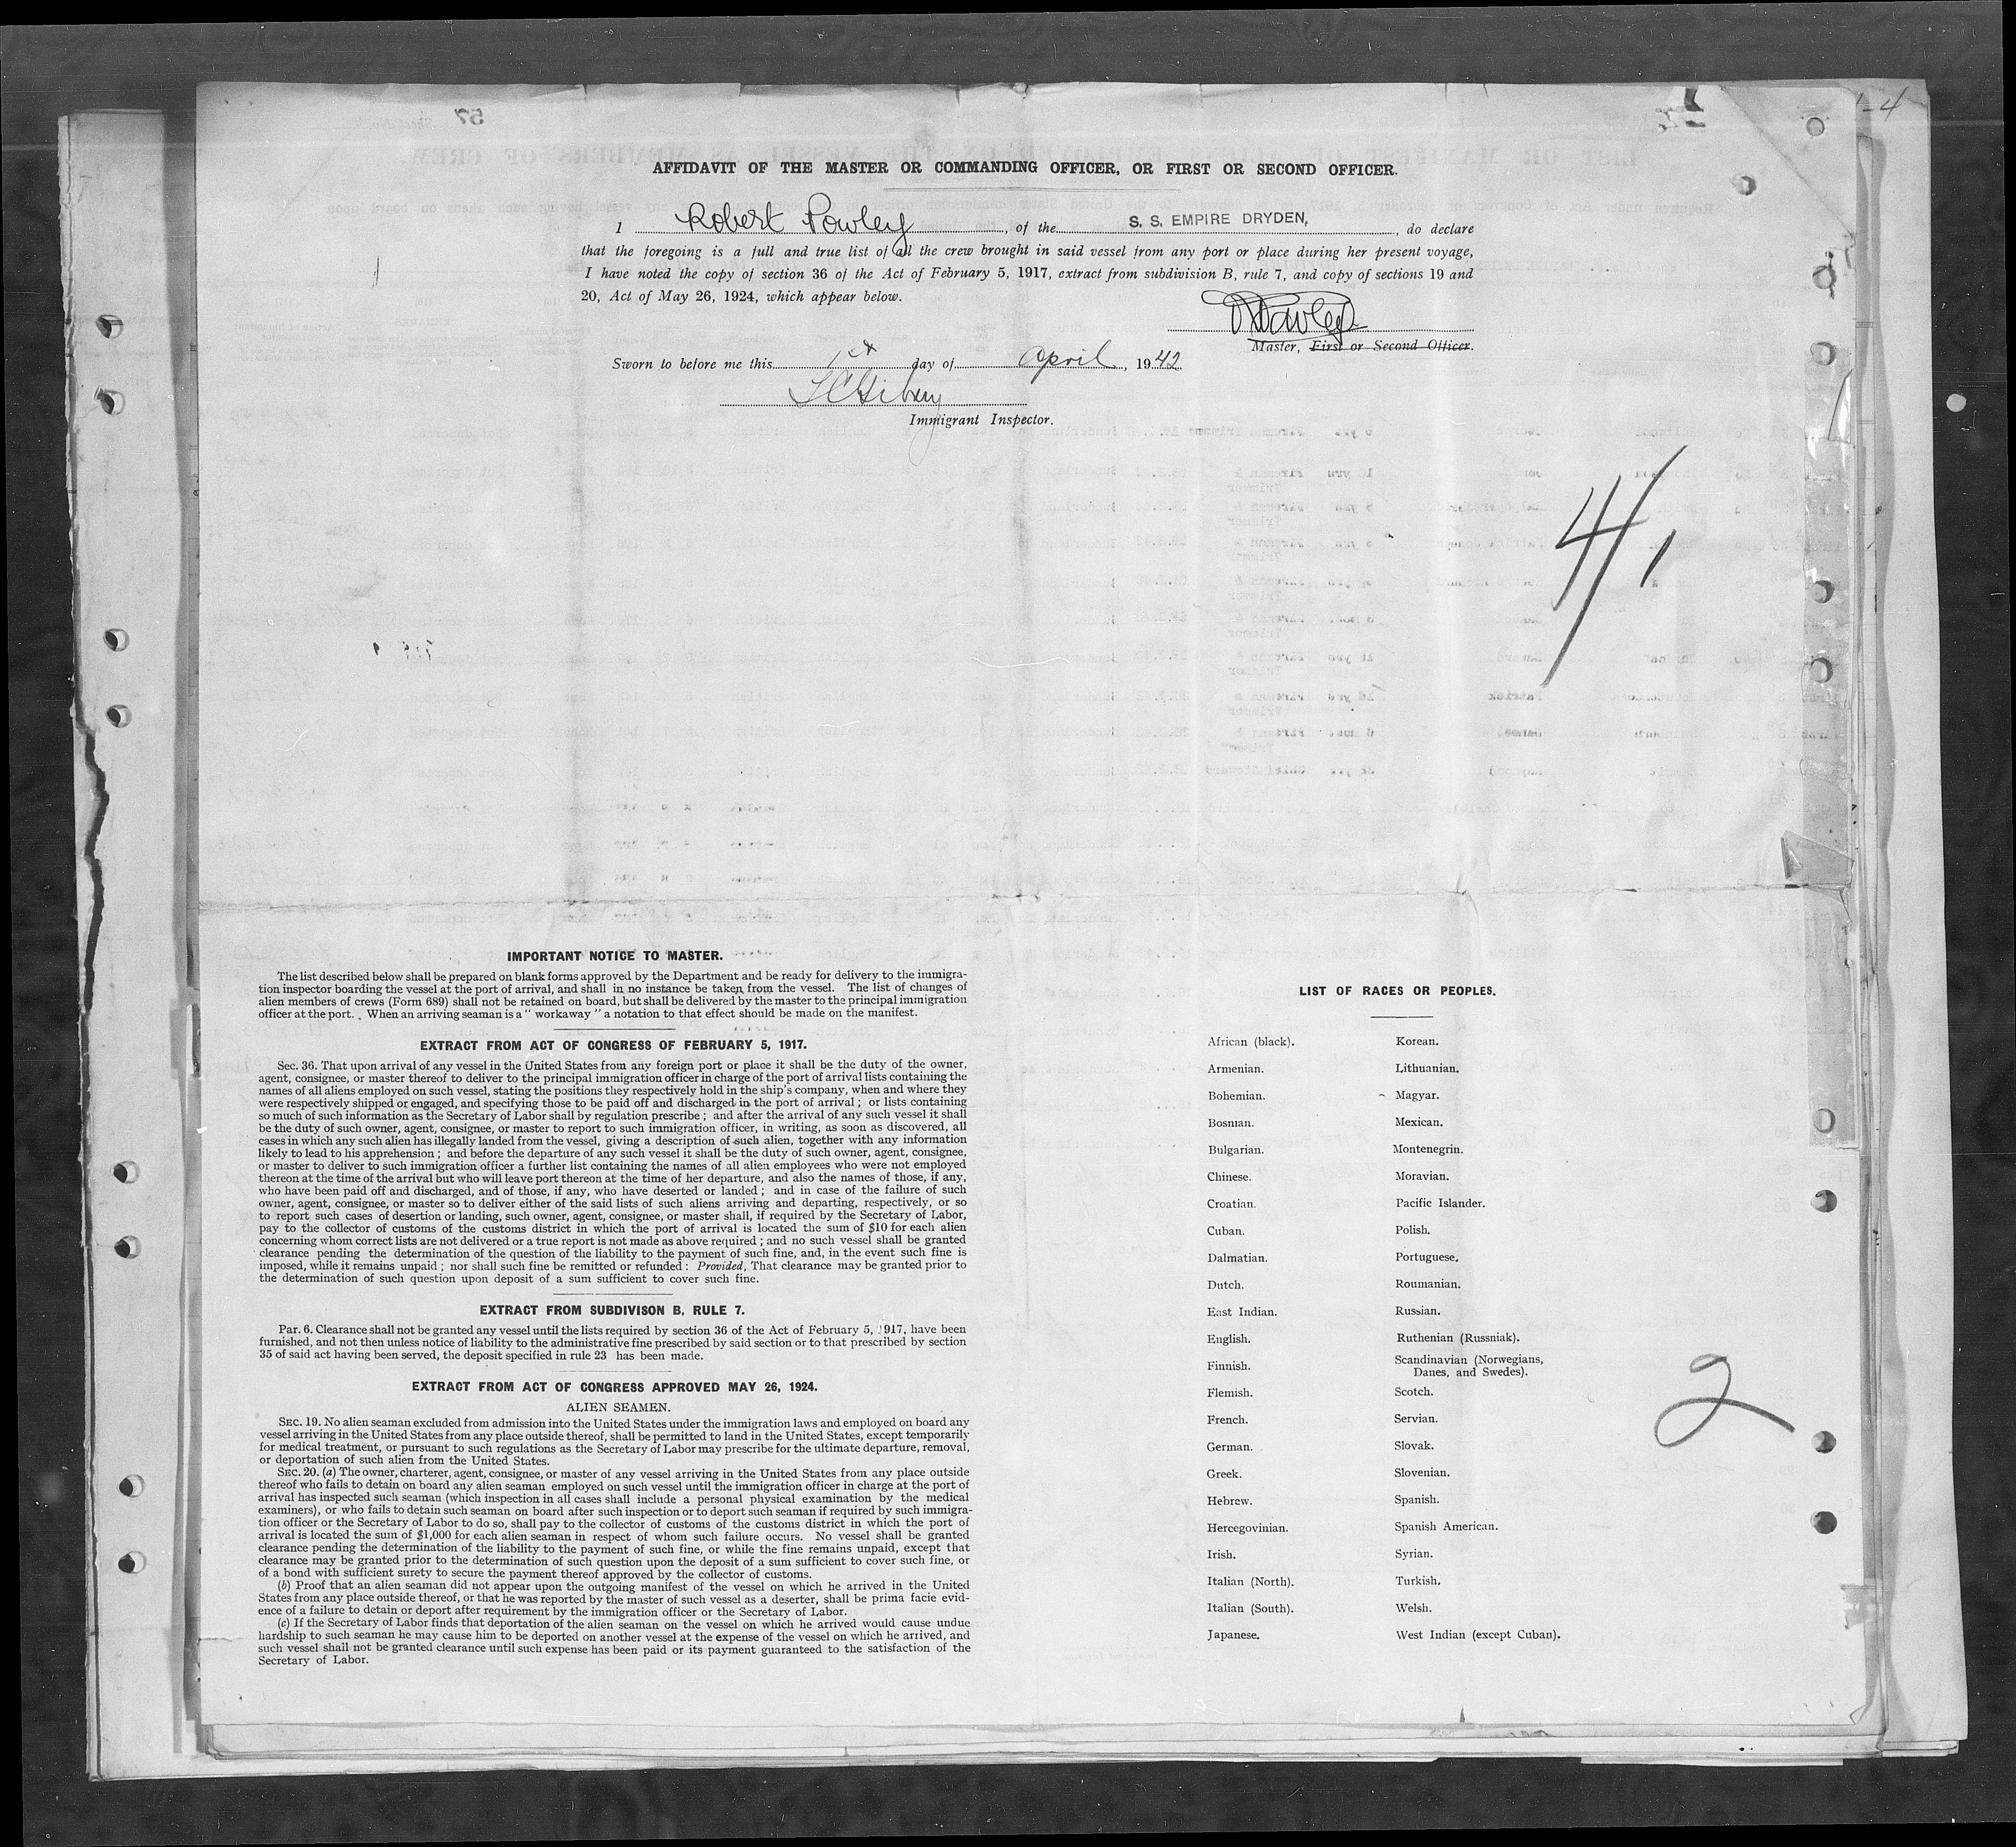 57
1-4
AFFIDAVIT OF THE MASTER OR COMMANDING OFFICER, OR FIRST OR SECOND OFFICER.
I Robert Powley, of the S. S. EMPIRE DRYDEN, , do declare
that the foregoing is a full and true list of all the crew brought in said vessel from any port or place during her present voyage,
I have noted the copy of section 36 of the Act of February 5, 1917, extract from subdivision B, rule 7, and copy of sections 19 and
20, Act of May 26, 1924, which appear below.
RPowley
Master, First or Second Officer.
Sworn to before me this 1st day of April, 1942
Immigrant Inspector.
4/1
IMPORTANT NOTICE TO MASTER.
The list described below shall be prepared on blank forms approved by the Department and be ready for delivery to the immigra-
tion inspector boarding the vessel at the port of arrival, and shall in no instance be taken from the vessel. The list of changes of
alien members of crews (Form 689) shall not be retained on board, but shall be delivered by the master to the principal immigration
officer at the port. When an arriving seaman is a " workaway " a notation to that effect should be made on the manifest.
EXTRACT FROM ACT OF CONGRESS OF FEBRUARY 5, 1917.
Sec. 36. That upon arrival of any vessel in the United States from any foreign port or place it shall be the duty of the owner,
agent, consignee, or master thereof to deliver to the principal immigration officer in charge of the port of arrival lists containing the
names of all aliens employed on such vessel, stating the positions they respectively hold in the ship's company, when and where they
were respectively shipped or engaged, and specifying those to be paid off and discharged in the port of arrival ; or lists containing
so much of such information as the Secretary of Labor shall by regulation prescribe ; and after the arrival of any such vessel it shall
be the duty of such owner, agent, consignee, or master to report to such immigration officer, in writing, as soon as discovered, all
cases in which any such alien has illegally landed from the vessel, giving a description of such alien, together with any information
likely to lead to his apprehension ; and before the departure of any such vessel it shall be the duty of such owner, agent, consignee,
or master to deliver to such immigration officer a further list containing the names of all alien employees who were not employed
thereon at the time of the arrival but who will leave port thereon at the time of her departure, and also the names of those, if any,
who have been paid off and discharged, and of those, if any, who have deserted or landed ; and in case of the failure of such
owner, agent, consignee, or master so to deliver either of the said lists of such aliens arriving and departing, respectively, or so
to report such cases of desertion or landing, such owner, agent, consignee, or master shall, if required by the Secretary of Labor,
pay to the collector of customs of the customs district in which the port of arrival is located the sum of $10 for each alien
concerning whom correct lists are not delivered or a true report is not made as above required ; and no such vessel shall be granted
clearance pending the determination of the question of the liability to the payment of such fine, and, in the event such fine is
imposed, while it remains unpaid ; nor shall such fine be remitted or refunded : Provided, That clearance may be granted prior to
the determination of such question upon deposit of a sum sufficient to cover such fine.
EXTRACT FROM SUBDIVISON B, RULE 7.
Par. 6. Clearance shall not be granted any vessel until the lists required by section 36 of the Act of February 5, 1917, have been
furnished, and not then unless notice of liability to the administrative fine prescribed by said section or to that prescribed by section
35 of said act having been served, the deposit specified in rule 23 has been made.
EXTRACT FROM ACT OF CONGRESS APPROVED MAY 26, 1924.
ALIEN SEAMEN.
SEC. 19. No alien seaman excluded from admission into the United States under the immigration laws and employed on board any
vessel arriving in the United States from any place outside thereof, shall be permitted to land in the United States, except temporarily
for medical treatment, or pursuant to such regulations as the Secretary of Labor may prescribe for the ultimate departure, removal,
or deportation of such alien from the United States.
SEC. 20. (a) The owner, charterer, agent, consignee, or master of any vessel arriving in the United States from any place outside
thereof who fails to detain on board any alien seaman employed on such vessel until the immigration officer in charge at the port of
arrival has inspected such seaman (which inspection in all cases shall include a personal physical examination by the medical
examiners), or who fails to detain such seaman on board after such inspection or to deport such seaman if required by such immigra-
tion officer or the Secretary of Labor to do so, shall pay to the collector of customs of the customs district in which the port of
arrival is located the sum of $1,000 for each alien seaman in respect of whom such failure occurs. No vessel shall be granted
clearance pending the determination of the liability to the payment of such fine, or while the fine remains unpaid, except that
clearance may be granted prior to the determination of such question upon the deposit of a sum sufficient to cover such fine, or
of a bond with sufficient surety to secure the payment thereof approved by the collector of customs.
(b) Proof that an alien seaman did not appear upon the outgoing manifest of the vessel on which he arrived in the United
States from any place outside thereof, or that he was reported by the master of such vessel as a deserter, shall be prima facie evid-
ence of a failure to detain or deport after requirement by the immigration officer or the Secretary of Labor.
(c) If the Secretary of Labor finds that deportation of the alien seaman on the vessel on which he arrived would cause undue
hardship to such seaman he may cause him to be deported on another vessel at the expense of the vessel on which he arrived, and
such vessel shall not be granted clearance until such expense has been paid or its payment guaranteed to the satisfaction of the
Secretary of Labor.
LIST OF RACES OR PEOPLES.
African (black).
Armenian.
Bohemian.
Bosnian.
Bulgarian.
Chinese.
Croatian.
Cuban.
Dalmatian.
Dutch.
East Indian.
English.
Finnish.
Flemish.
French.
German.
Greek.
Hebrew.
Hercegovinian.
Irish.
Italian (North).
Italian (South).
Japanese.
Korean.
Lithuanian.
Magyar.
Mexican.
Montenegrin.
Moravian.
Pacific Islander.
Polish.
Portuguese.
Roumanian.
Russian.
Ruthenian (Russniak).
Scandinavian (Norwegians,
Danes, and Swedes).
Scotch.
Servian.
Slovak.
Slovenian.
Spanish.
Spanish American.
Syrian.
Turkish.
Welsh.
West Indian (except Cuban).
2